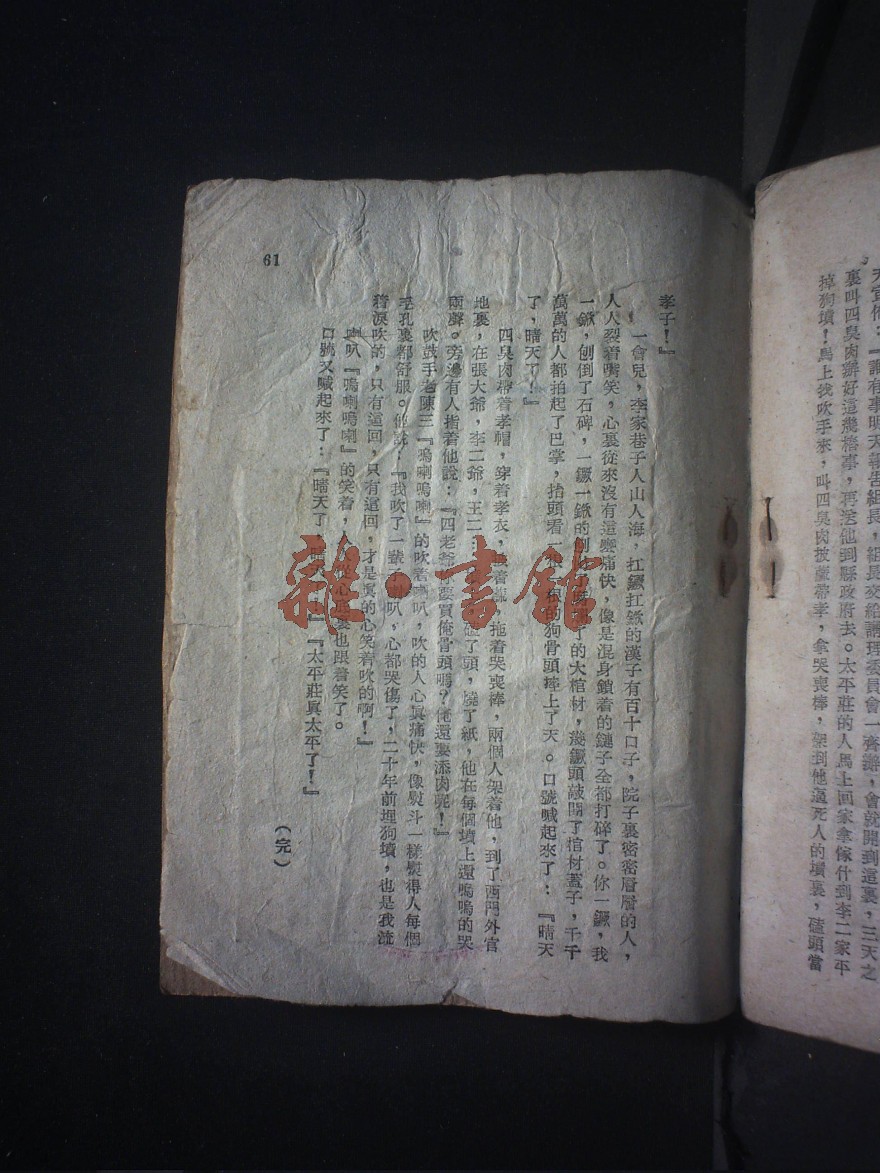 天宣佈：『誰有事明天報告組長，組長交給調理委員會一齊辦，會就開到這裏，三天之
裏叫四臭肉辦好這幾樁事，再送他到縣政府去。太平莊的人馬上回家拿傢什到李二家平
掉狗墳！馬上找吹手來，叫四臭肉披蔴帶孝，拿哭喪棒，架到他逼死人的墳裏，磕頭當
孝子！』
一會兒，李家巷子人山人海，扛钁扛鍬的漢子有百十口子，院子裏密密層層的人，
人人裂着嘴笑，心裏從來沒有這麼痛快，像是混身鎖着的鏈子全都打碎了。你一钁，我
一鍬，刨倒了石碑，一钁一鍬的刨 了的大棺材，幾钁頭敲開了棺材蓋子，千千
萬萬的人都拍起了巴掌，抬頭看一 根的狗骨頭摔上了天。口號喊起來了：『晴天
了，晴天了！』
四臭肉帶着孝帽，穿着孝衣， 着 拖着哭喪棒，兩個人架着他，到了西門外官
地裏，在張大爺，李二爺，王二 磕了頭，燒了紙，他在每個墳上還嗚嗚的哭
兩聲。旁邊有人指着他說：『四老爺 要買俺骨頭嗎？俺還要添肉呢！』
吹鼓手老陳三『嗚喇嗚喇』的吹著喇叭，吹的人心眞痛快，像熨斗一樣熨得人每個
毛孔裏都舒服。他說：『我吹了一輩子喇叭，心都哭傷了，二十年前埋狗墳，也是我流
着淚吹的，只有這回，只有這回，才是眞的心笑着吹的啊！』
喇叭『嗚喇嗚喇』的笑着， 心底裏也跟着笑了。
口號又喊起來了：『晴天了 』『太平莊眞太平了！』
（完）
61
雜·書館